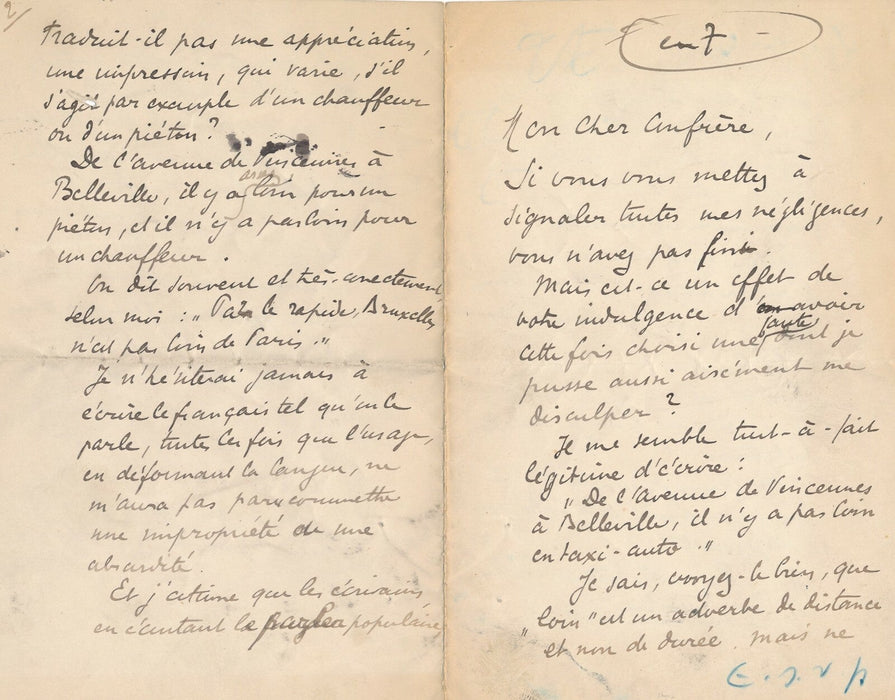 en 7
Mon cher Confrère,
Si vous vous mettez à
signaler toutes mes négligences,
vous n'avez pas fini.
Mais est-ce un effet de
votre indulgence d'avoir
cette fois choisi une faute dont je
pusse aussi aisément me
disculper ?
Il me semble tout-à-fait
légitime d'écrire :
"De l'avenue de Vincennes
à Belleville, il n'y a pas loin
en taxi-auto."
Je sais, croyez-le bien, que
"loin" est un adverbe de distance
et non de durée. Mais ne
T. S. V. P
2/
traduit-il pas une appréciation,
une impression, qui varie, s'il
s'agit par exemple d'un chauffeur
ou d'un piéton ?
De l'avenue de Vincennes à
Belleville, il y a assez loin pour un
piéton, et il n'y a pas loin pour
un chauffeur.
On dit souvent et très-correctement,
selon moi : "Par le rapide, Bruxelles
n'est pas loin de Paris."
Je n'hésiterai jamais à
écrire le français tel qu'on le
parle, toutes les fois que l'usage,
en déformant la langue, ne
m'aura pas paru commettre
une impropriété ou une
absurdité.
Et j'estime que les écrivains
en écoutant le parler populaire,